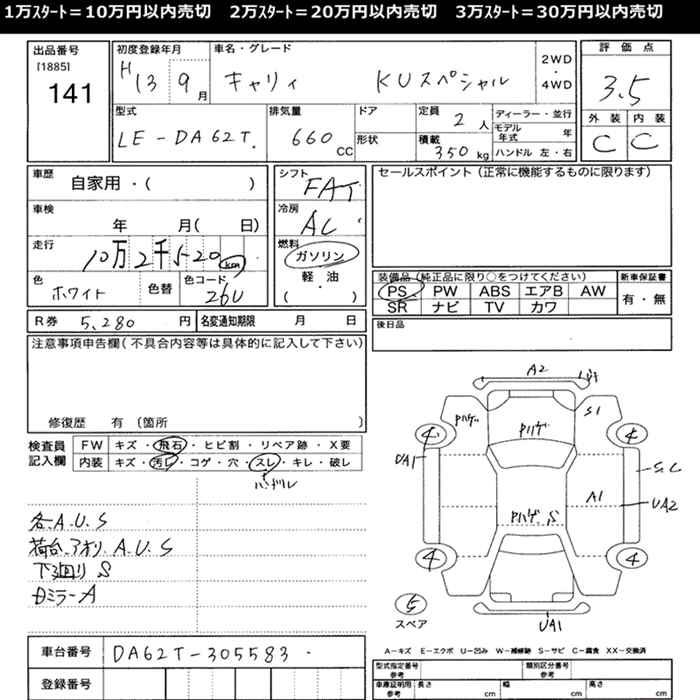 1万ｽﾀｰﾄ=10万円以内売切　2万ｽﾀｰﾄ=20万円以内売切　3万ｽﾀｰﾄ=30万円以内売切
出品番号
[1885]
141
初度登録年月
H13 9月
車名・グレード
キャリィ KUスペシャル
2WD
・
4WD
評価点
3.5
型式
LE-DA62T.
排気量
660 CC
ドア
形状
定員
2人
積載
350 kg
ディーラー・並行
モデル年式 年
ハンドル 左・右
外装 内装
C C
車歴
自家用・( )
シフト
FAT
セールスポイント(正常に機能するものに限ります)
車検
年 月( 日)
冷房
AC
走行
10万2千520km
燃料
ガソリン
軽・油
( )
色
ホワイト
色替
色コード
26U
装備品(純正品に限り○をつけてください)
PS PW ABS エアB AW
SR ナビ TV カワ
新車保証書
有・無
R券 5,280 円
名変通知期限 月 日
後日品
注意事項申告欄(不具合内容等は具体的に記入して下さい)
修復歴 有〔箇所 〕
検査員記入欄
FW キズ・飛石・ヒビ割・リペア跡・X要
内装 キズ・汚レ・コゲ・穴・スレ・キレ・破レ
ハンドル
各A.U.S
荷台.アオリ A.U.S
下廻り S
Bミラー A
A2
Pハゲ
Pハゲ
S1
4
4
UA1
S.C
A1
UA2
Pハゲ S
4
4
5
スペア
UA1
A−キズ E−エクボ U−凹み W−補修跡 S−サビ C−腐食 XX−交換済
車台番号 DA62T-305583
登録番号
型式指定番号
参考
類別区分番号
参考
車庫証明用
参考
長さ cm
幅 cm
高さ cm